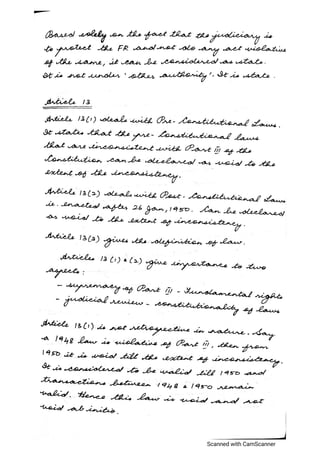 Based solely on the fact that the judiciary is
to protect the FR and not do any act violative
of the same, it can be considered as state.
It is not under 'other authority'. It is state.
Article 13
Article 13(1) deals with Pre-Constitutional Laws.
It states that the pre-Constitutional laws
that are inconsistent with Part III of the
Constitution can be declared as void to the
extent of the inconsistency.
Article 13(2) deals with Post-Constitutional Laws
ie. enacted after 26 Jan, 1950. Can be declared
as void to the extent of inconsistency.
Article 13(3) gives the definition of law.
Articles 13(1) & (2) give importance to two
aspects:
- supremacy of Part III - Fundamental rights
- judicial review - constitutionality of laws
Article 13(1) is not retrospective in nature. Say
a 1948 law is violative of Part III, then from
1950 it is void till the extent of inconsistency.
It is considered to be valid till 1950 and
transactions between 1948 & 1950 remain
valid. Hence this law is void and not
void ab initio.
Scanned with CamScanner